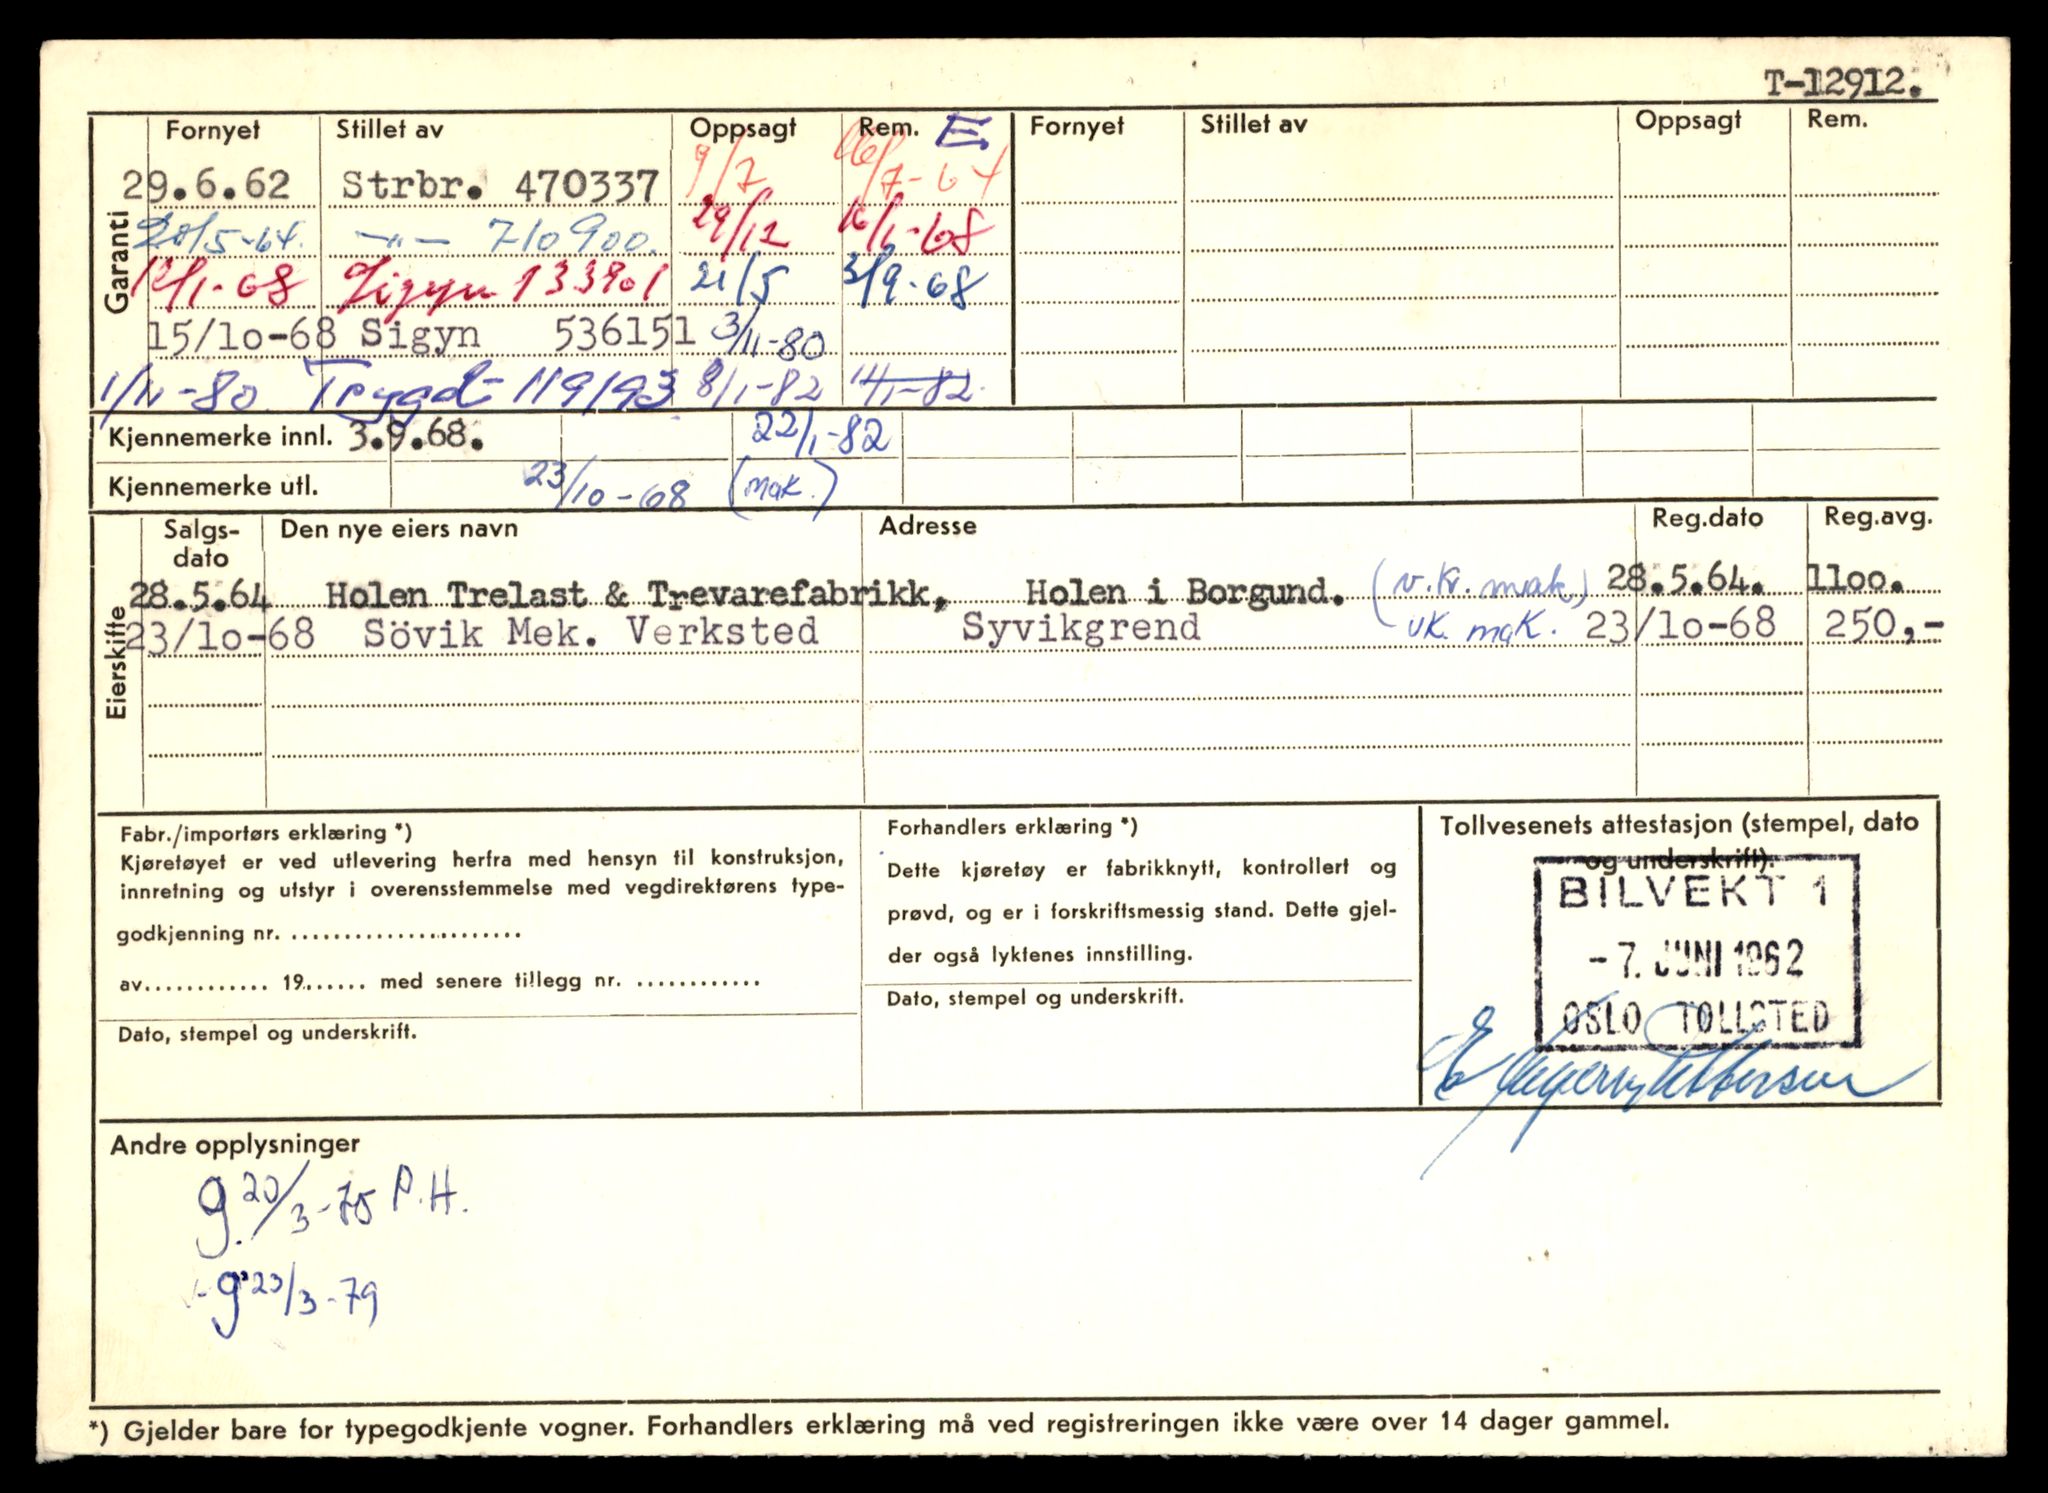 T-12912.
Garanti
Fornyet Stillet av Oppsagt Rem. E. Fornyet Stillet av Oppsagt Rem.
29.6.62 Strbr. 470337 9/7 16/7-64
20/5-64. -"- 710900. 29/12 16/1-68
12/1-68 Sigyn 133901 21/5 3/9-68
15/10-68 Sigyn 536151 3/11-80
1/11-80 Trygd- 119193 8/1-82 14/1-82.
Kjennemerke innl. 3.9.68. 22/1-82
Kjennemerke utl. 23/10-68 (mak.)
Eierskifte
Salgs-dato Den nye eiers navn Adresse Reg.dato Reg.avg.
28.5.64 Holen Trelast & Trevarefabrikk, Holen i Borgund. (v.kr. mak) 28.5.64. 1100.
23/10-68 Sövik Mek. Verksted Syvikgrend vk. mak. 23/10-68 250,-
Fabr./importørs erklæring *)
Kjøretøyet er ved utlevering herfra med hensyn til konstruksjon,
innretning og utstyr i overensstemmelse med vegdirektørens type-
godkjenning nr. ......................
av............ 19....... med senere tillegg nr. ............
Dato, stempel og underskrift.
Forhandlers erklæring *)
Dette kjøretøy er fabrikknytt, kontrollert og
prøvd, og er i forskriftsmessig stand. Dette gjel-
der også lyktenes innstilling.
Dato, stempel og underskrift.
Tollvesenets attestasjon (stempel, dato
og underskrift).
BILVEKT 1
-7. JUNI 1962
OSLO TOLLSTED
Andre opplysninger
g. 20/3-75 P.H.
- g 23/3-79
*) Gjelder bare for typegodkjente vogner. Forhandlers erklæring må ved registreringen ikke være over 14 dager gammel.